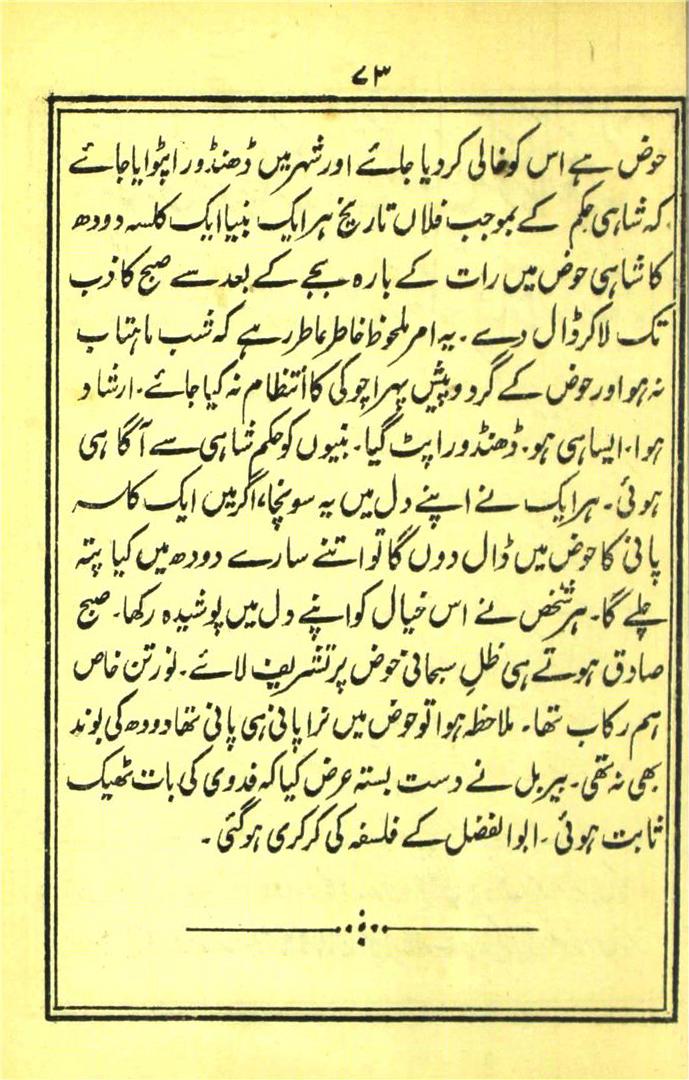 ۷۳
حوض ہے اس کو خالی کر دیا جائے اور شہر میں ڈھنڈورا پٹوایا جائے
کہ شاہی حکم کے بموجب فلاں تاریخ ہر ایک بنیا ایک کلسہ دودھ
کا شاہی حوض میں رات کے بارہ بجے کے بعد سے صبح کاذب
تک لا کر ڈال دے ۔ یہ امر ملحوظ خاطر عاطر رہے کہ شب ماہتاب
نہ ہو اور حوض کے گرد و پیش پہرا چوکی کا انتظام نہ کیا جائے ۔ ارشاد
ہوا ۔ ایسا ہی ہو ۔ ڈھنڈورا پٹ گیا ۔ بنیوں کو حکم شاہی سے آگاہی
ہوئی ۔ ہر ایک نے اپنے دل میں یہ سونچا، اگر میں ایک کاسہ
پانی کا حوض میں ڈال دوں گا تو اتنے سارے دودھ میں کیا پتہ
چلے گا ۔ ہر شخص نے اس خیال کو اپنے دل میں پوشیدہ رکھا ۔ صبح
صادق ہوتے ہی ظلِ سبحانی حوض پر تشریف لائے ۔ نورتن خاص
ہم رکاب تھا ۔ ملاحظہ ہوا تو حوض میں نرا پانی ہی پانی تھا دودھ کی بوند
بھی نہ تھی ۔ بیربل نے دست بستہ عرض کیا کہ فدوی کی بات ٹھیک
ثابت ہوئی ۔ ابوالفضل کے فلسفہ کی کرکری ہو گئی ۔